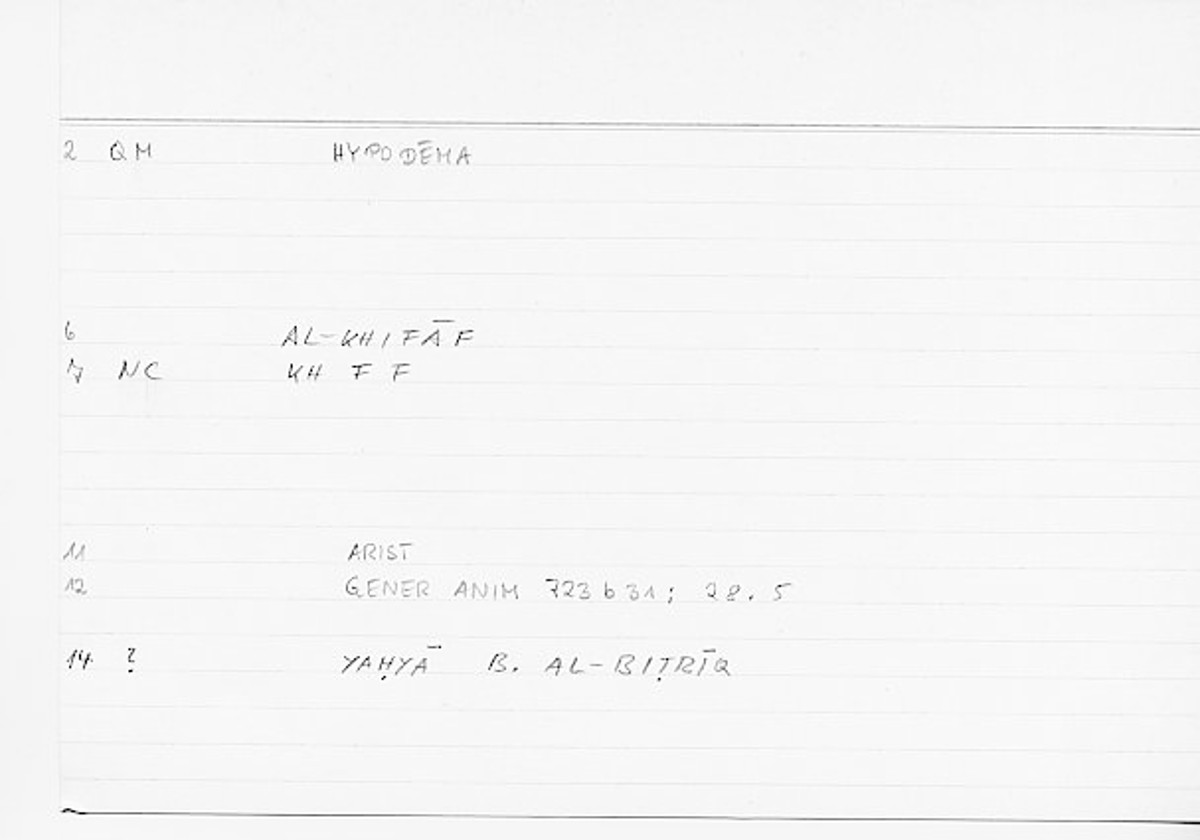 2 QM HYPODĒMA
6 AL-KHIFĀF
7 NC KH F F
11 ARIST
12 GENER ANIM 723 b 31; 28.5
14 ? YAḤYĀ B. AL-BIṬRĪQ